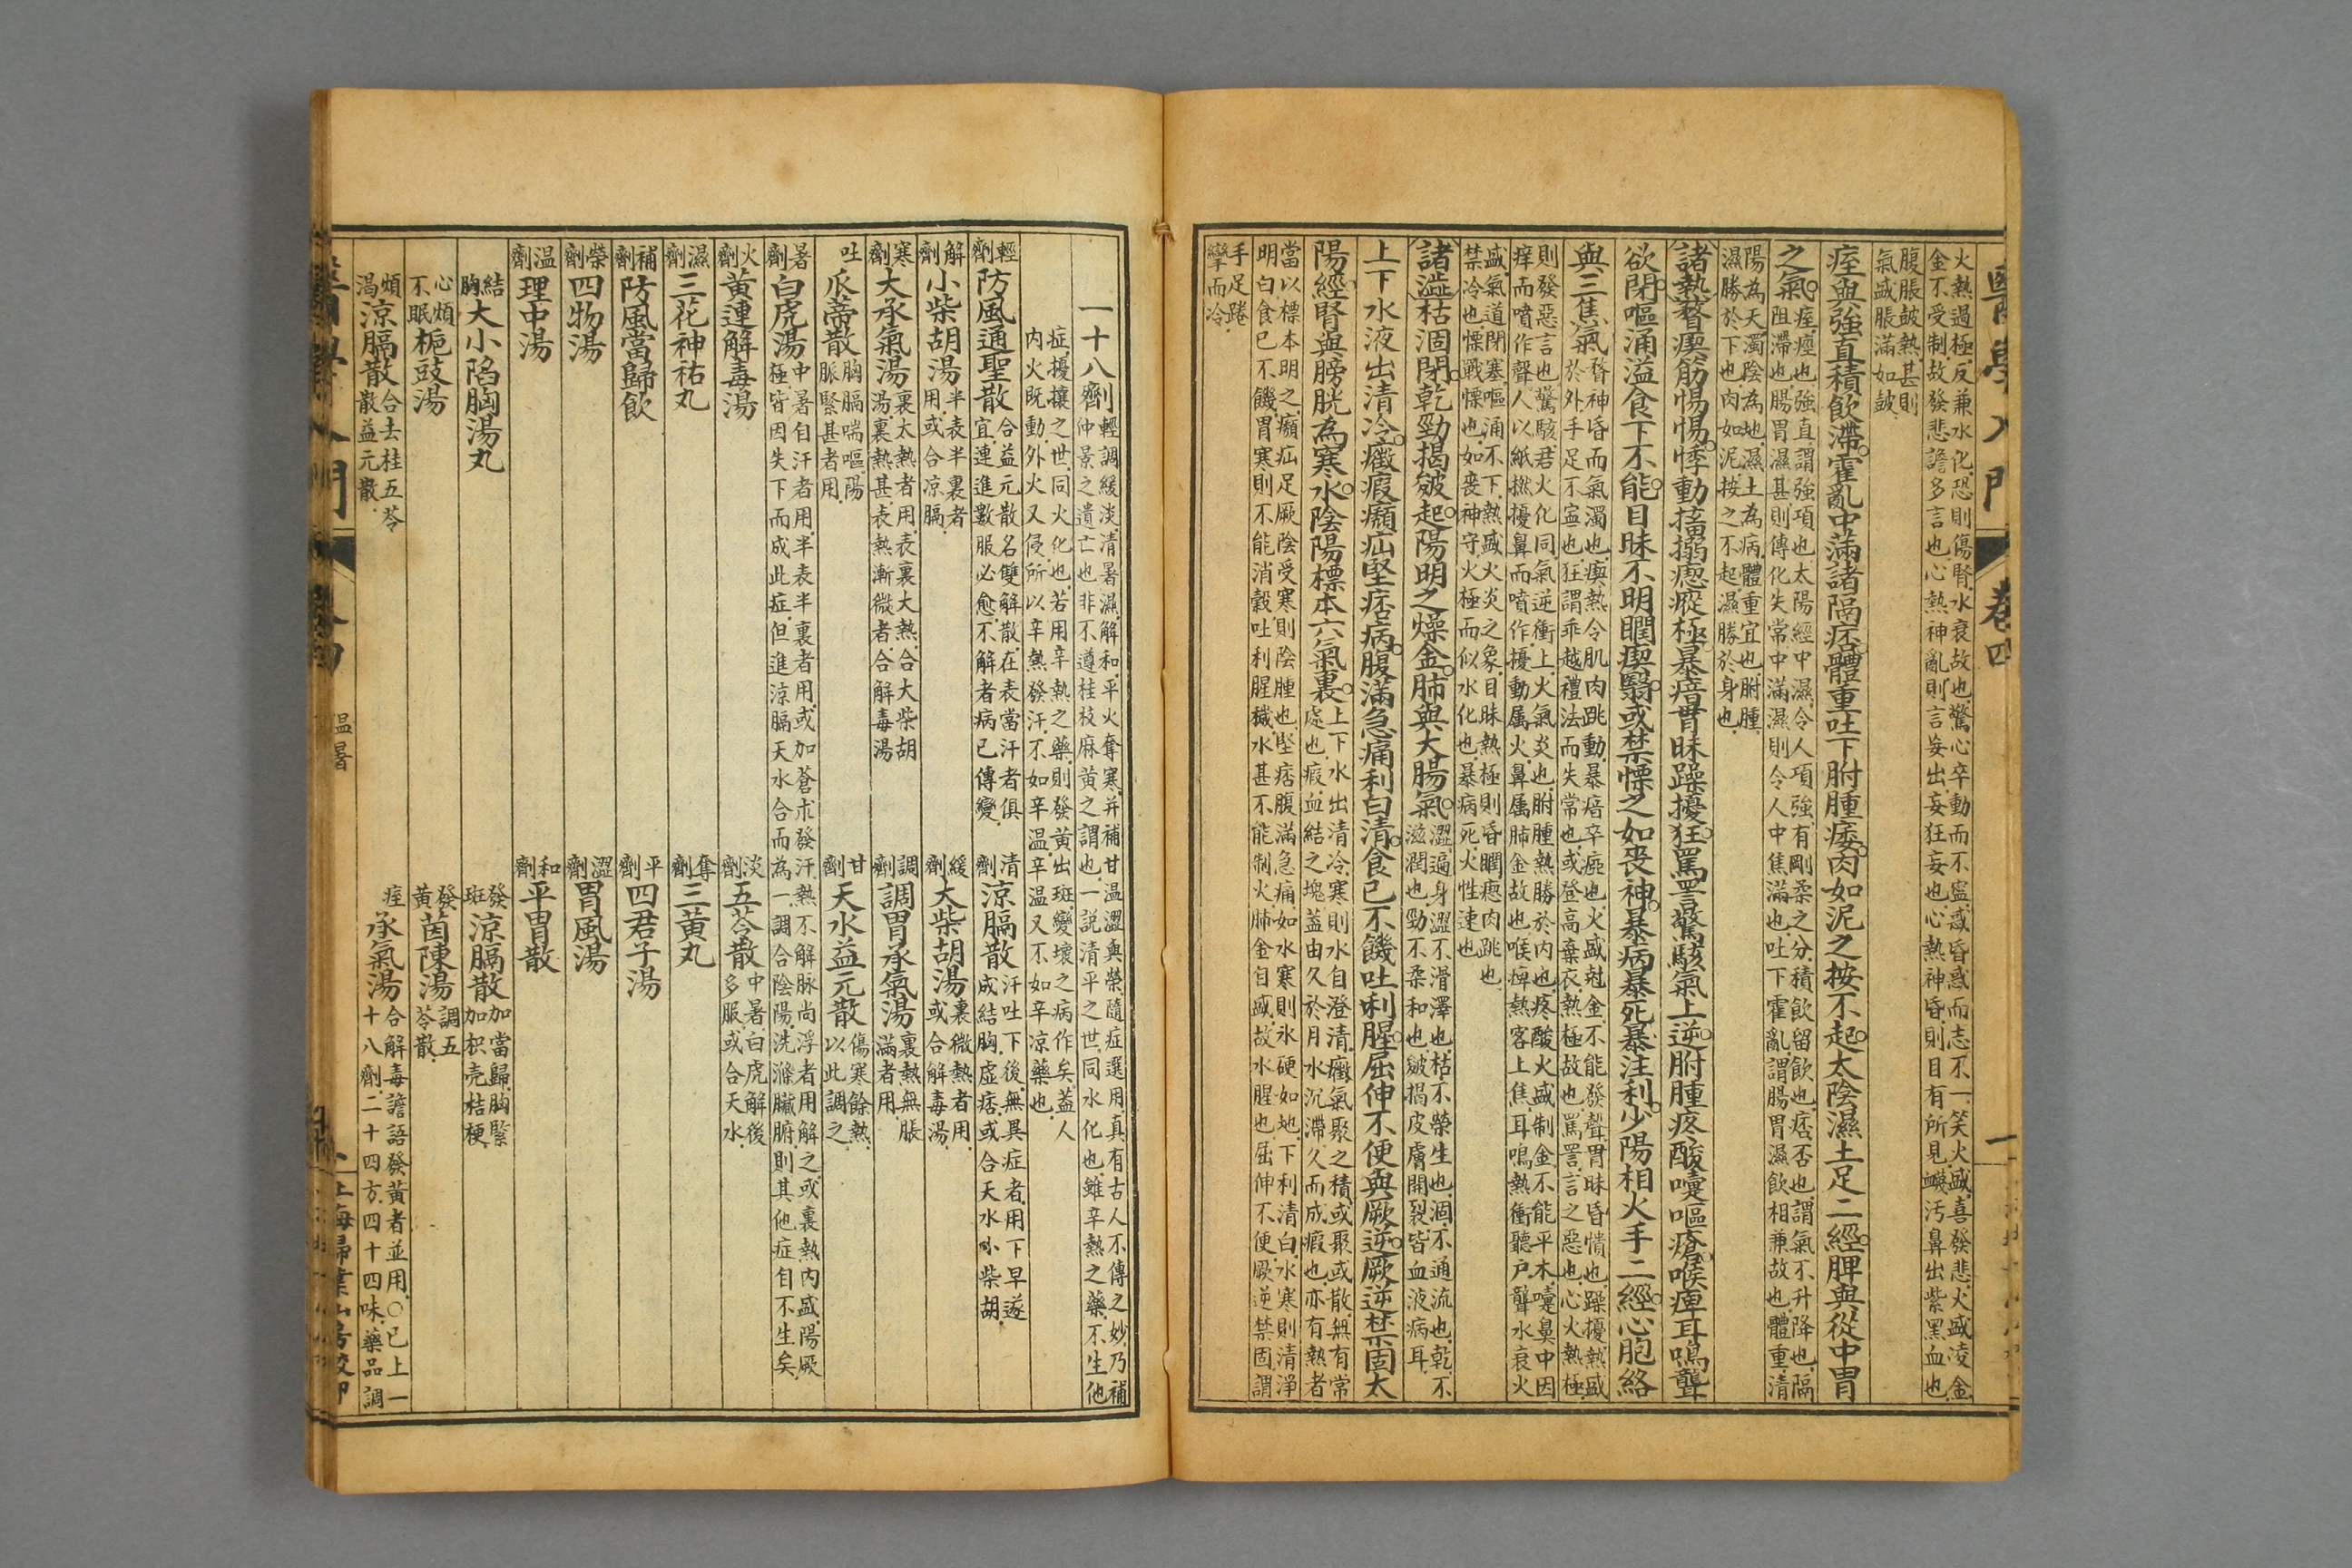 醫學入門 卷四
火熱過極反兼水化恐則傷腎水衰故也驚心卒動而不寧惑昏惑而志不一笑火盛喜發悲火盛凌金
金不受制故發悲譫多言也心熱神亂則言妄出妄狂妄也心熱神昏則目有所見衊汚鼻出紫黑血也
腹脹皷熱甚則
氣盛脹滿如皷
痓與強直積飲滯霍亂中滿諸隔痞體重吐下胕腫痿肉如泥之按不起太陰濕土足二經脾與從中胃
之氣
痓痙也強直謂強項也太陽經中濕令人項強有剛柔之分積飲留飲也痞否也謂氣不升降也隔
阻滯也腸胃濕甚則傳化失常中滿濕則令人中焦滿也吐下霍亂謂腸胃濕飲相兼故也體重清
陽為天濁陰為地濕土為病體重宜也胕腫
濕勝於下也肉如泥按之不起濕勝於身也
諸熱瞀瘈筋惕惕悸動搐搦瘛瘲極暴瘖冒昧躁擾狂罵詈驚駭氣上逆胕腫疼酸嚏嘔瘡喉痺耳鳴聾
欲閉嘔涌溢食下不能目昧不明瞤瘈翳或禁慄之如喪神暴病暴死暴注利少陽相火手二經心胞絡
與三焦氣
瞀神昏而氣濁也瘈熱令肌肉跳動暴瘖卒瘂也火盛尅金不能發聲冒昧昏憒也躁擾熱盛
於外手足不寧也狂謂乖越禮法而失常也或登高棄衣熱極故也罵詈言之惡也心火熱極
則發惡言也驚駭君火化同氣逆衝上火氣炎也胕腫熱勝於內也疼酸火盛制金不能平木嚏鼻中因
痒而噴作聲人以紙撚擾鼻而噴作擾動属火鼻属肺金故也喉痺熱客上焦耳鳴熱衝聽户聾水衰火
盛氣道閉塞嘔涌不下熱盛火炎之象目昧熱極則昏瞤瘛肉跳也
禁冷也慄戰慄也如喪神守火極而似水化也暴病死火性速也
諸澁枯涸閉乾勁揭皴起陽明之燥金肺與大腸氣
澀遍身澀不滑澤也枯不榮生也涸不通流也乾不
滋潤也勁不柔和也皴揭皮膚開裂皆血液病耳
上下水液出清冷癥瘕㿗疝堅痞病腹滿急痛利白清食已不饑吐利腥屈伸不便與厥逆厥逆禁固太
陽經腎與膀胱為寒水陰陽標本六氣裏
上下水出清冷寒則水自澄清癥氣聚之積或聚或散無有常
處也瘕血結之塊蓋由久於月水沉滯久而成瘕也亦有熱者
當以標本明之㿗疝足厥陰受寒則陰腫也堅痞腹滿急痛如水寒則氷硬如地下利清白水寒則清淨
明白食已不饑胃寒則不能消穀吐利腥穢水甚不能制火肺金自盛故水腥也屈伸不便厥逆禁固謂
手足踡
攣而冷
一十八劑
輕調緩淡清暑濕解和平火奪寒并補甘温澀與榮隨症選用真有古人不傳之妙乃補
仲景之遺亡也非不遵桂枝麻黄之謂也一説清平之世同水化也雖辛熱之藥不生他
症擾攘之世同火化也若用辛熱之藥則發黄出斑變壞之病作矣蓋人
内火既動外火又侵所以辛熱發汗不如辛温辛温又不如辛凉藥也
輕劑 防風通聖散
合益元散名雙解散在表當汗者俱
宜連進數服必愈不解者病已傳變
清劑 凉膈散
汗吐下後無異症者用下早遂
成結胸虚痞或合天水小柴胡
解劑 小柴胡湯
半表半裏者
用或合凉膈
緩劑 大柴胡湯
裏微熱者用
或合解毒湯
寒劑 大承氣湯
裏太熱者用表裏大熱合大柴胡
湯裏熱甚表熱漸微者合解毒湯
調劑 調胃承氣湯
裏熱無脹
滿者用
吐 瓜蒂散
胸膈喘嘔陽
脈緊甚者用
甘劑 天水益元散
傷寒餘熱
以此調之
暑劑 白虎湯
中暑自汗者用半表半裏者用或加蒼朮發汗熱不解脈尚浮者用解之或裏熱内盛陽厥
極皆因失下而成此症但進涼膈天水合而為一調合陰陽洗滌臟腑則其他症自不生矣
火劑 黄連解毒湯
淡劑 五苓散
中暑白虎解後
多服或合天水
濕劑 三花神祐丸
奪劑 三黄丸
補劑 防風當歸飲
平劑 四君子湯
榮劑 四物湯
澀劑 胃風湯
温劑 理中湯
和劑 平胃散
結胸 大小陷胸湯丸
發斑 涼膈散
加當歸胸緊
加枳壳桔梗
心煩不眠 梔豉湯
發黄 茵陳湯
調五
苓散
煩渴 涼膈散
合去桂五苓
散益元散
痓 承氣湯
合解毒譫語發黄者並用○已上一
十八劑二十四方四十四味藥品調
醫學入門 卷四 温暑
上海掃葉山房校印